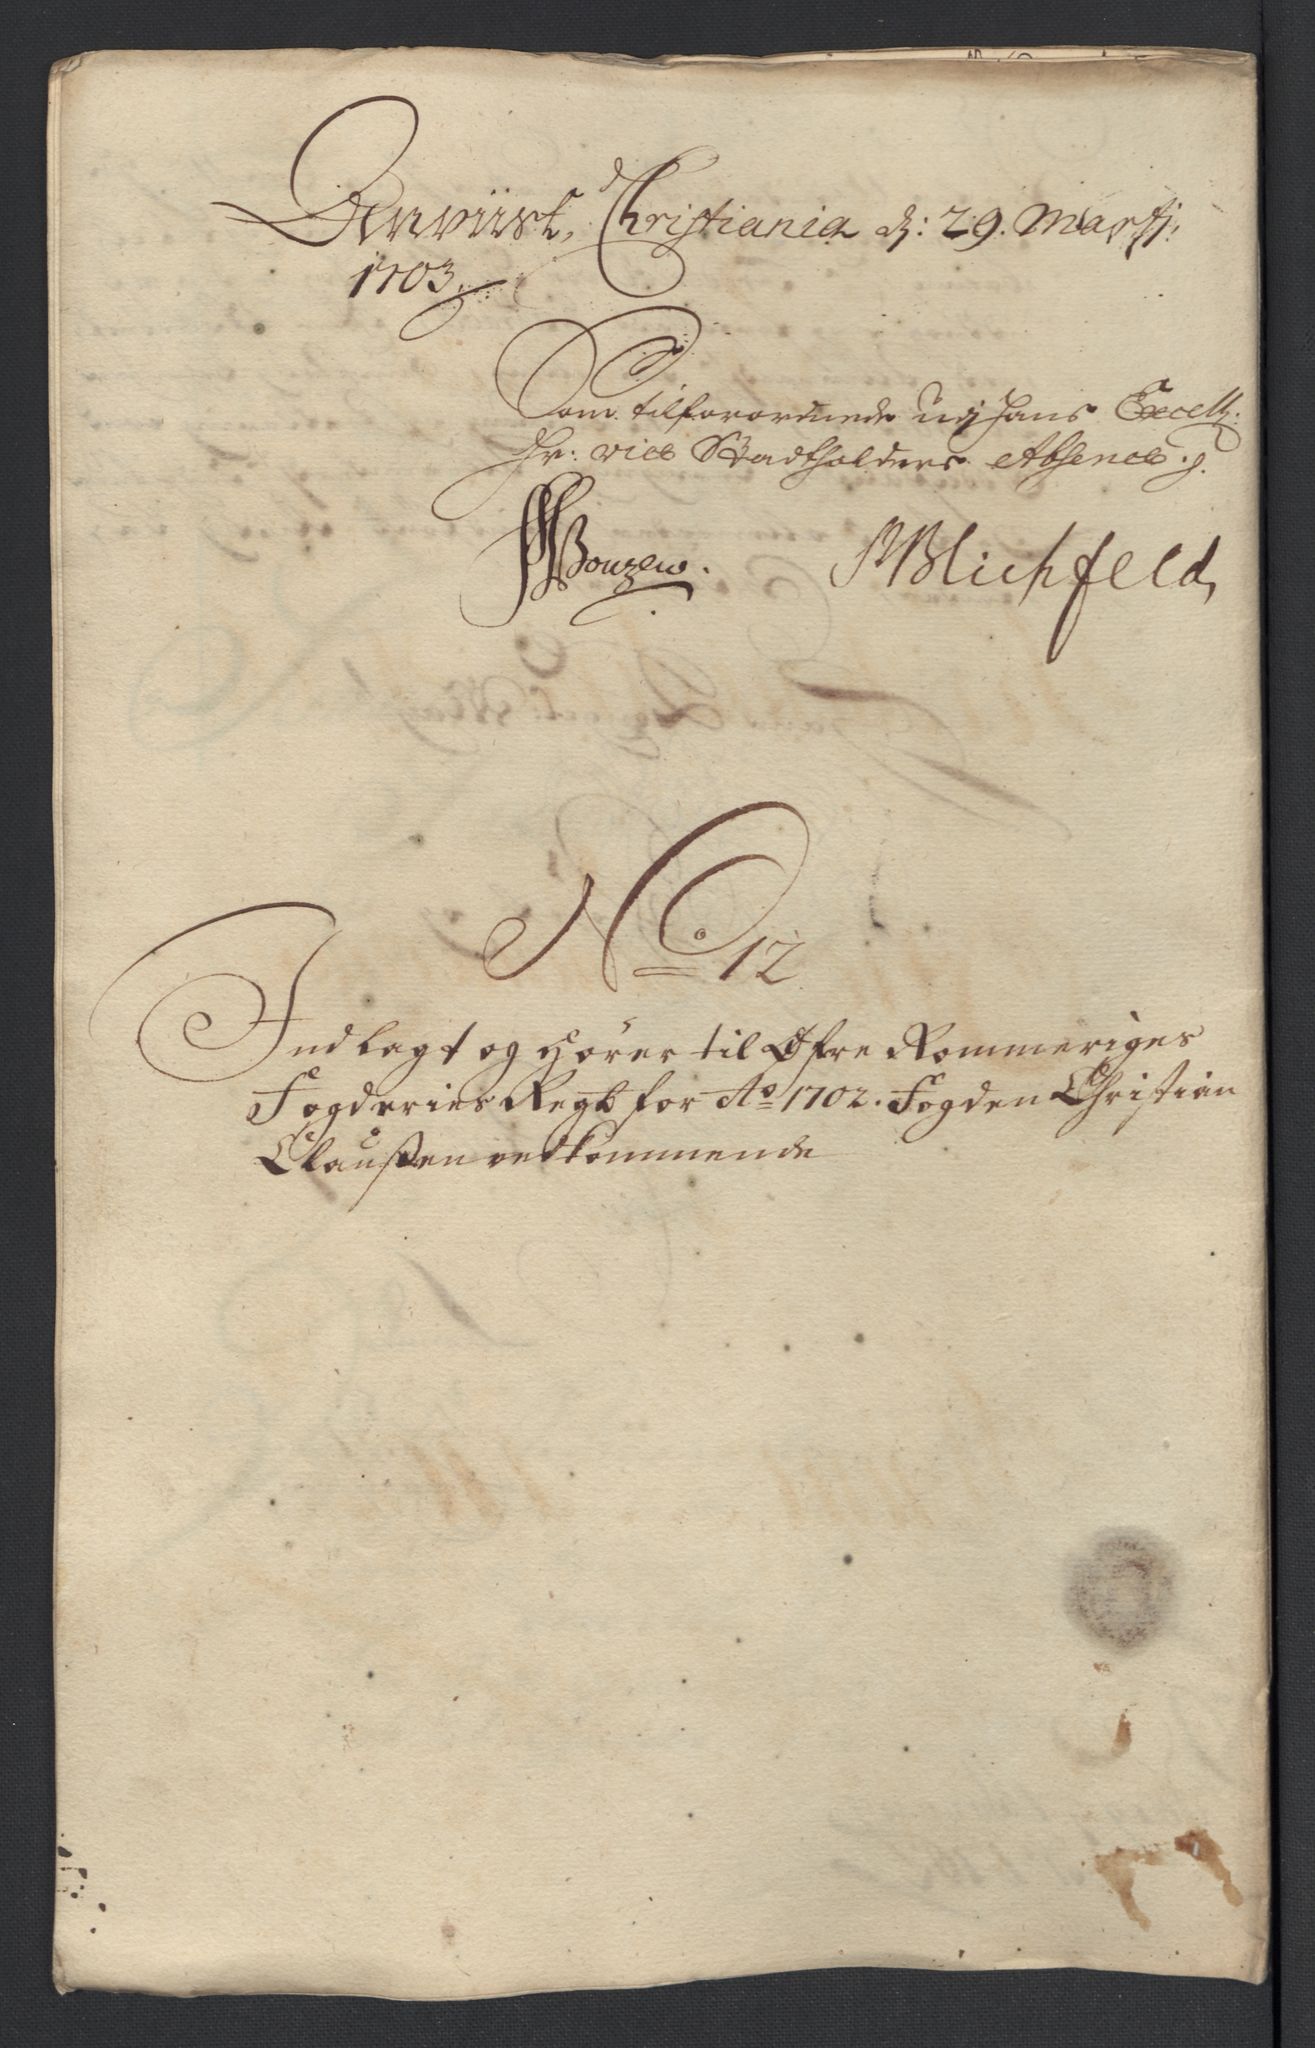 Anviist, Christiania d: 29. Martij
1703.
Som tilforordnede udj hans Excellz:
Hr: vice Stadtholders Absence.
PBlichfeld
No 12
Indlagt og hörer til Øfre Rommeriges
Fogderies Regb for Ao 1702. Fogden Christian
Claußen vedkommende